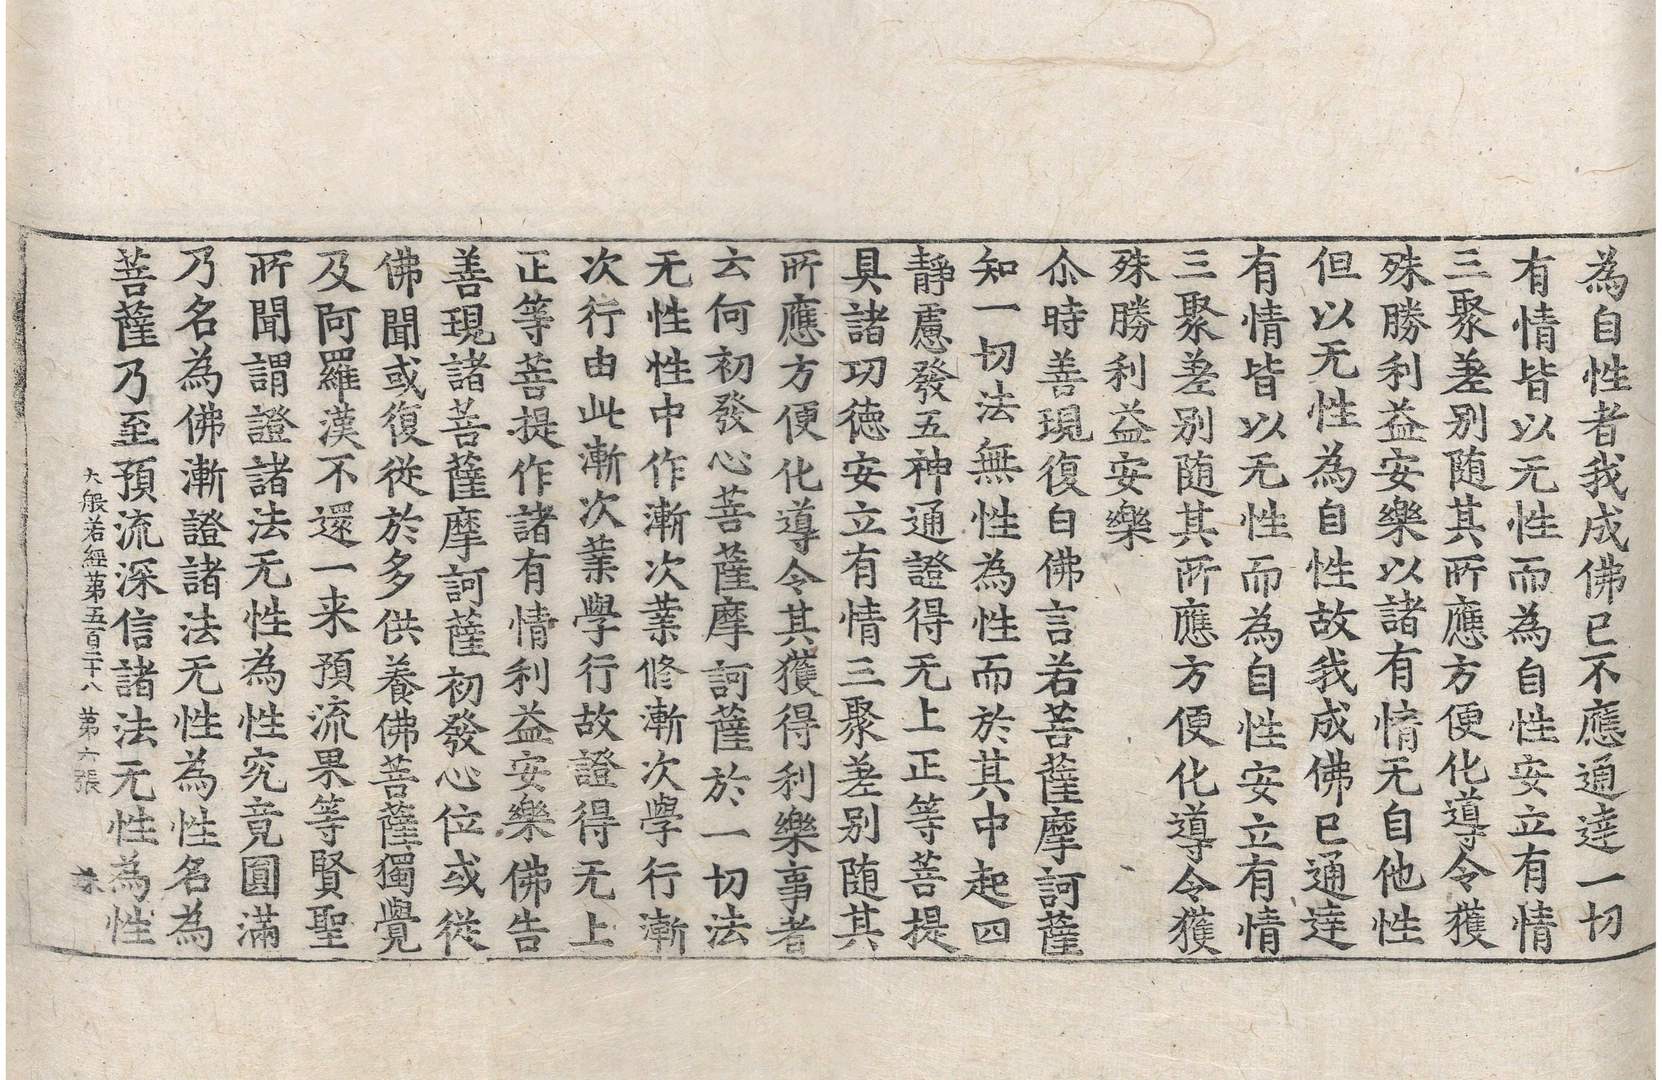 為自性者我成佛已不應通達一切
有情皆以无性而為自性安立有情
三聚差别随其所應方便化導令獲
殊勝利益安樂以諸有情无自他性
但以无性為自性故我成佛已通達
有情皆以无性而為自性安立有情
三聚差别随其所應方便化導令獲
殊勝利益安樂
尒時善現復白佛言若菩薩摩訶薩
知一切法無性為性而於其中起四
静慮發五神通證得无上正等菩提
具諸功德安立有情三聚差别随其
所應方便化導令其獲得利樂事者
云何初發心菩薩摩訶薩於一切法
无性性中作漸次業修漸次學行漸
次行由此漸次業學行故證得无上
正等菩提作諸有情利益安樂佛告
善現諸菩薩摩訶薩初發心位或從
佛聞或復從於多供養佛菩薩獨覺
及阿羅漢不還一来預流果等賢聖
所聞謂證諸法无性為性究竟圓滿
乃名為佛漸證諸法无性為性名為
菩薩乃至預流深信諸法无性為性
大般若經第五百二十八 第六張